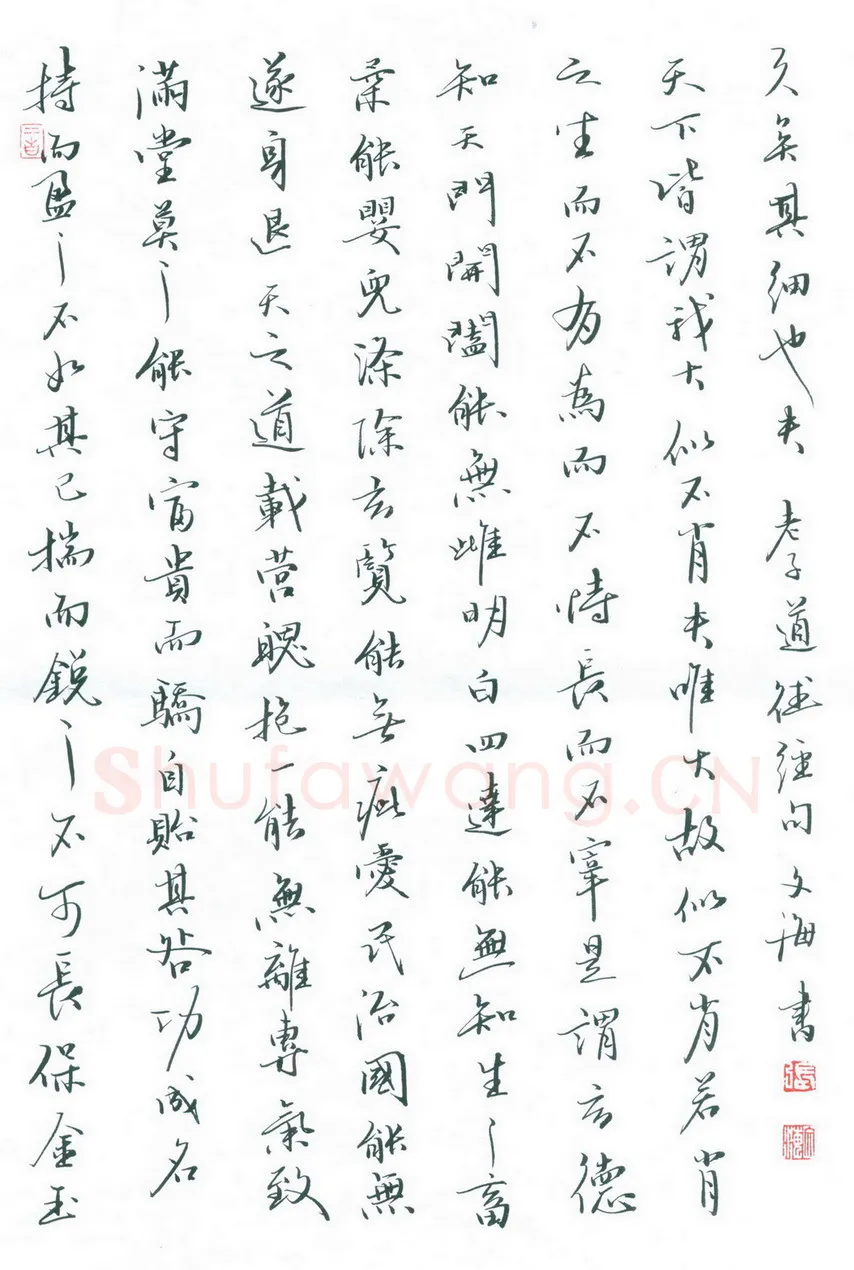 持而盈之不如其已揣而銳之不可長保金玉
滿堂莫之能守富貴而驕自貽其咎功成名
遂身退天之道載營魄抱一能無離專氣致
柔能嬰兒滌除玄覽能無疵愛民治國能無
知天門開闔能無雌明白四達能無知生之畜
之生而不有為而不恃長而不宰是謂玄德
天下皆謂我大似不肖夫唯大故似不肖若肖
久矣其細也夫 老子道德經句 文海書
Shufawang.CN